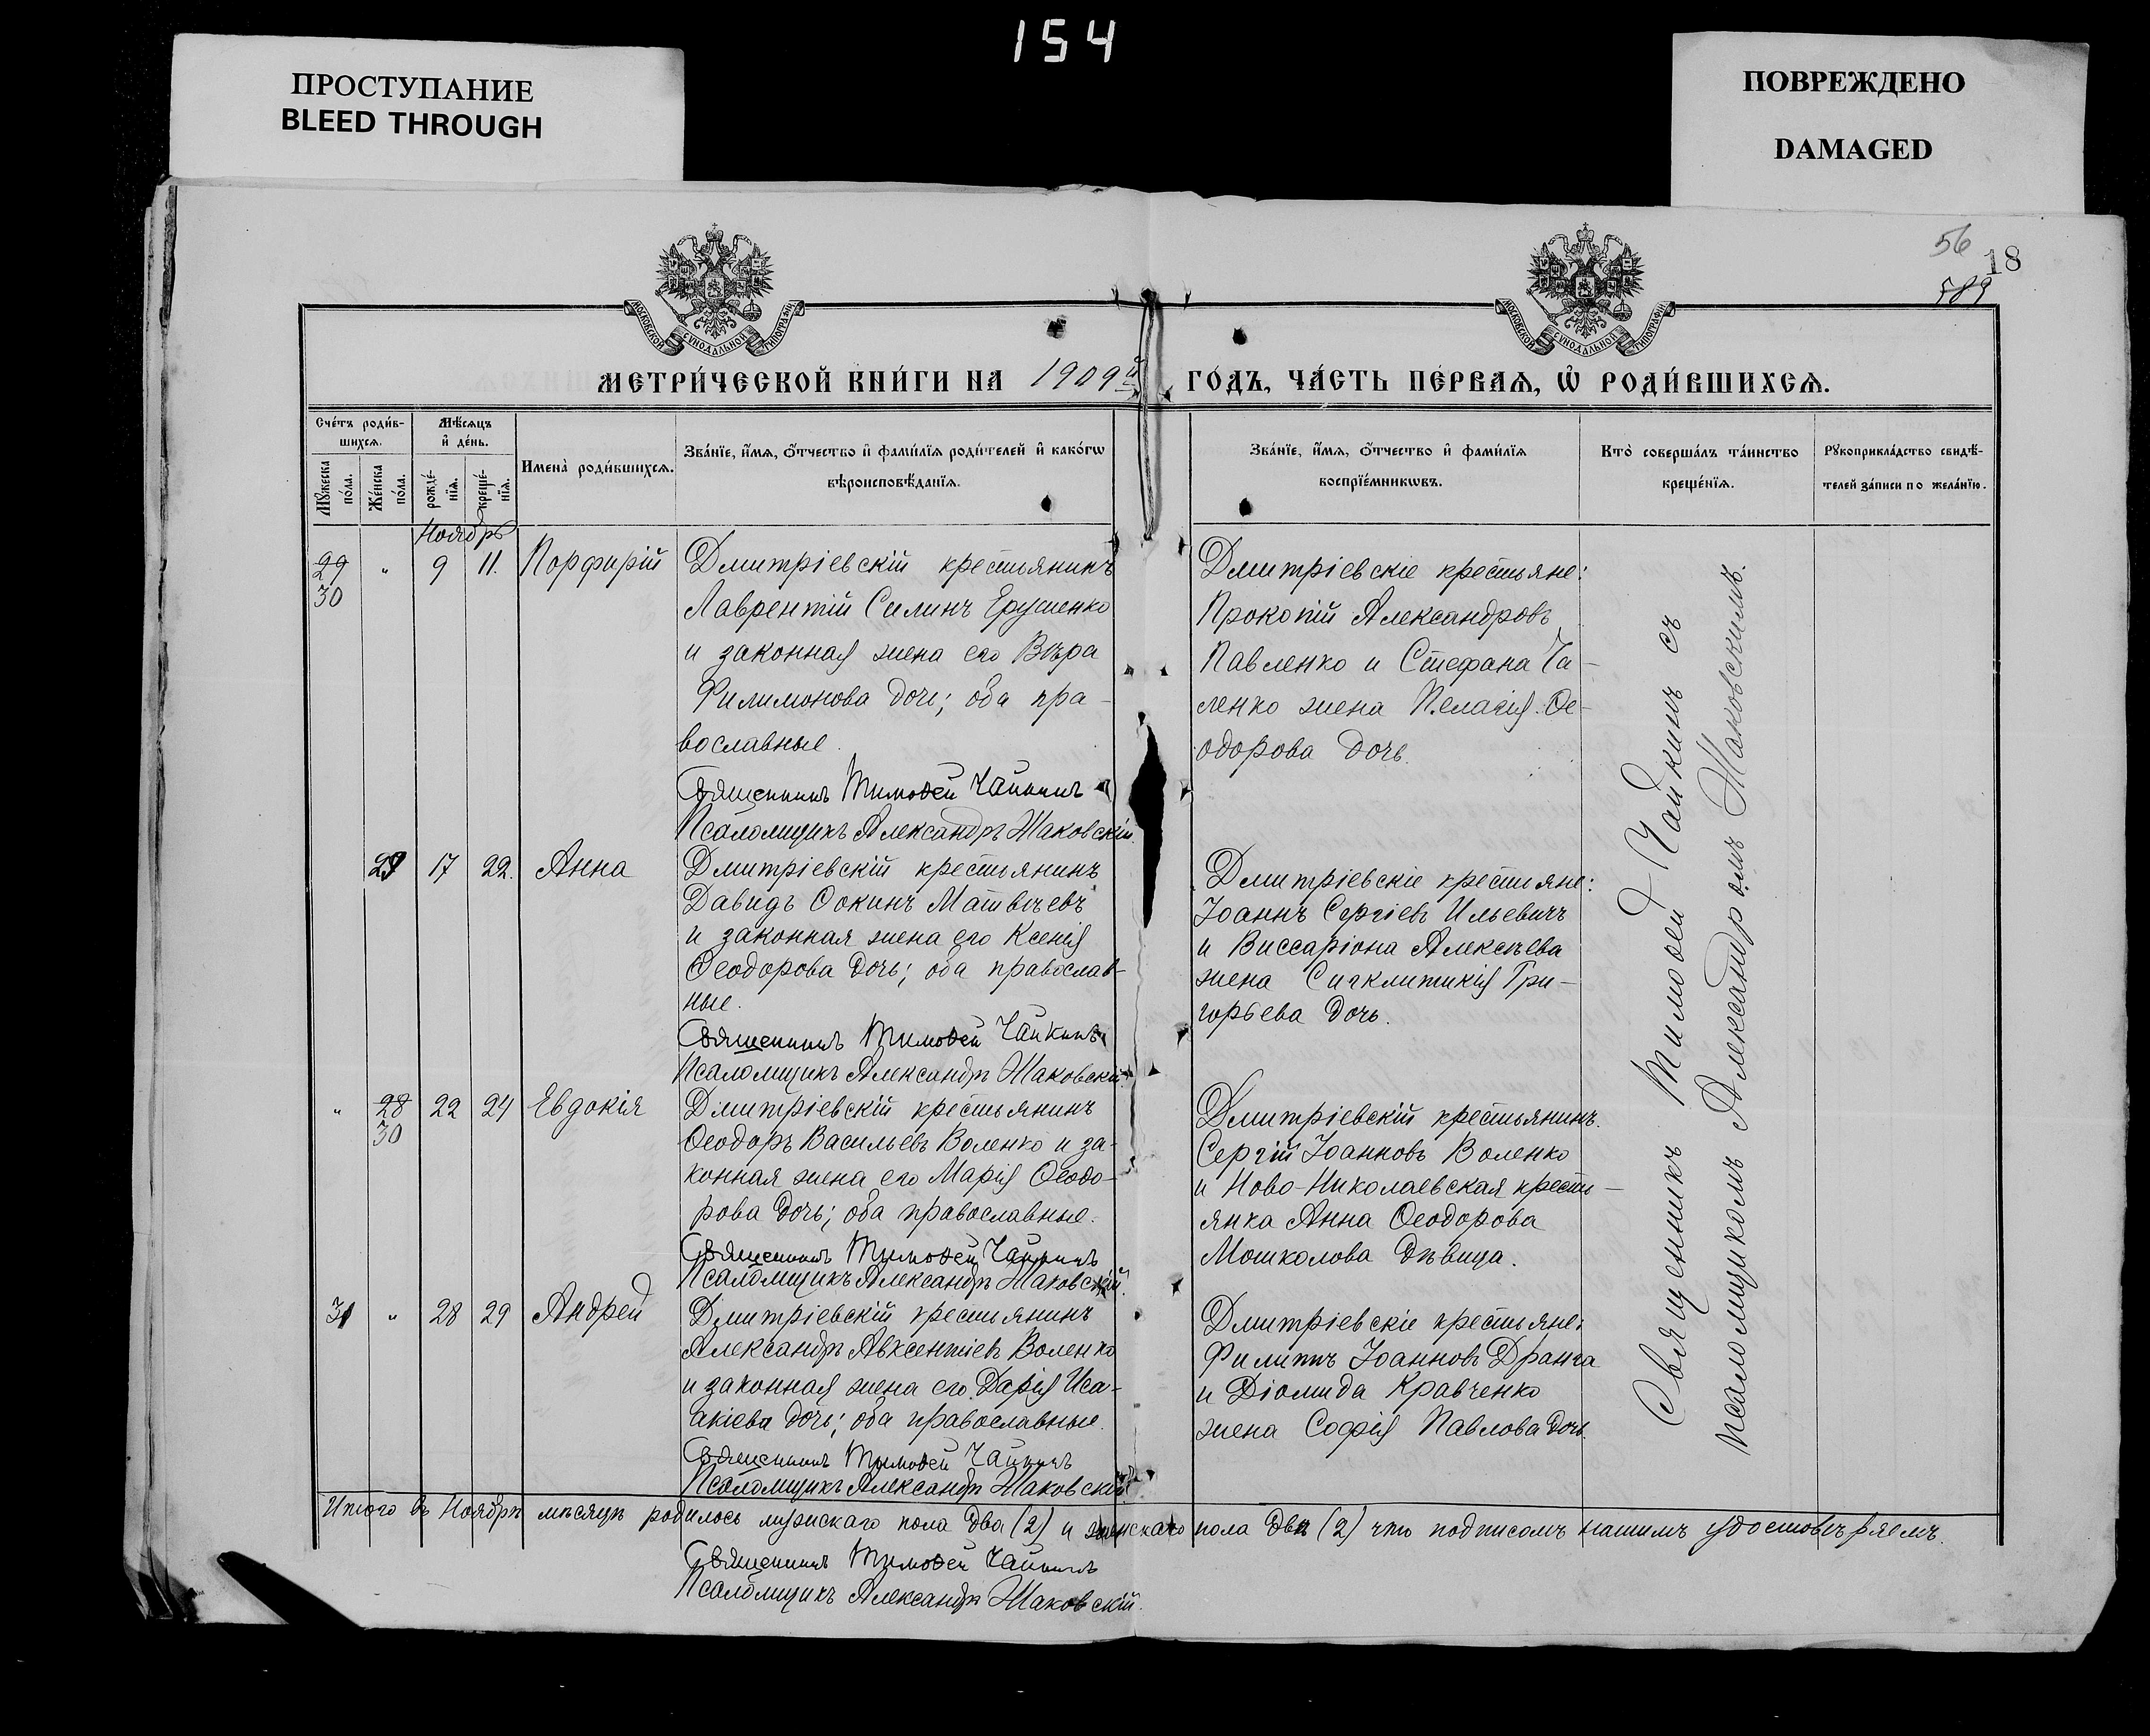 154
ПРОСТУПАНИЕ
BLEED THROUGH
ПОВРЕЖДЕНО
DAMAGED
56
18
589
МОСКОВСКОЙ СѴНОДАЛЬНОЙ ТИПОГРАФІИ
МОСКОВСКОЙ СѴНОДАЛЬНОЙ ТИПОГРАФІИ
МЕТРИ́ЧЕСКОЙ КНИ́ГИ НА 1909й ГО́ДЪ, ЧА́СТЬ ПЕ́РВАѦ, Ѡ҆ РОДИ́ВШИХСѦ.
Сче́тъ роди́в-
шихсѧ.
Мѣ́сѧцъ
и҆ де́нь.
Мꙋ́жеска
по́ла.
Же́нска
по́ла.
рожде́-
нїѧ.
креще́-
нїѧ.
Имена̀ роди́вшихсѧ.
Зва́нїе, и҆́мѧ, ѻ҆́тчество и҆ фами́лїѧ роди́телей и҆ како́гѡ
вѣроисповѣ́данїѧ.
Зва́нїе, и҆́мѧ, ѻ҆́тчество и҆ фами́лїѧ
воспрїе́мникѡвъ.
Кто̀ соверша́лъ та́инство
креще́нїѧ.
Рꙋкоприкла́дство свидѣ́-
телей за́писи по жела́нїю.
Ноябрь
29 " 9 11. Порфирій
30
Дмитріевскій крестьянинъ
Лаврентій Силинъ Ерусенко
и законная жена его Вѣра
Филимонова дочь; оба пра-
вославные.
Священникъ Тимоѳей Чайкинъ
Псаломщикъ Александръ Жаковскій.
Дмитріевскіе крестьяне:
Прокопій Александровъ
Павленко и Стефана Ча-
ленко жена Пелагія Ѳе-
одорова дочь.
29 17 22. Анна
Дмитріевскій крестьянинъ
Давидъ Ѳокинъ Матвѣевъ
и законная жена его Ксенія
Ѳеодорова дочь; оба православ-
ные.
Священникъ Тимоѳей Чайкинъ
Псаломщикъ Александръ Жаковскій.
Дмитріевскіе крестьяне:
Іоаннъ Сергіевъ Ильевичъ
и Виссаріона Алексѣева
жена Сигклитикія Гри-
горьева дочь.
" 28 22 24 Евдокія
30
Дмитріевскій крестьянинъ
Ѳеодоръ Васильевъ Воленко и за-
конная жена его Марія Ѳеодо-
рова дочь; оба православные.
Священникъ Тимоѳей Чайкинъ
Псаломщикъ Александръ Жаковскій.
Дмитріевскій крестьянинъ
Сергій Іоанновъ Воленко
и Ново-Николаевская кресть-
янка Анна Ѳеодорова
Мошколова дѣвица.
31 " 28 29 Андрей
Дмитріевскій крестьянинъ
Александръ Авксентіевъ Воленко
и законная жена его Дарія Иса-
акіева дочь; оба православные.
Священникъ Тимоѳей Чайкинъ
Псаломщикъ Александръ Жаковскій.
Дмитріевскіе крестьяне:
Филиппъ Іоанновъ Дранга
и Діомида Кравченко
жена Софія Павлова дочь.
Священникъ Тимоѳей Чайкинъ съ
псаломщикомъ Александромъ Жаковскимъ.
Итого въ Ноябрѣ мѣсяцѣ родилось мужскаго пола два (2) и женскаго пола два (2) что подписомъ нашимъ удостовѣряемъ.
Священникъ Тимоѳей Чайкинъ
Псаломщикъ Александръ Жаковскій.